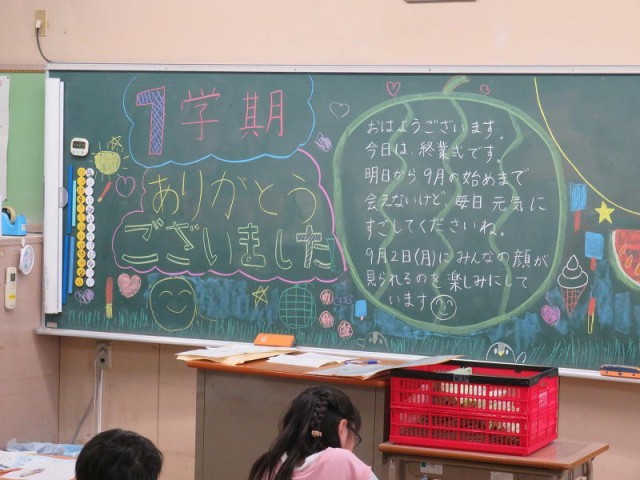 1学期
ありがとう
ございました
おはようございます。
今日は、終業式です。
明日から9月の始めまで
会えないけど、毎日元気に
すごしてくださいね。
9月2日(月)にみんなの顔が
見られるのを楽しみにして
います